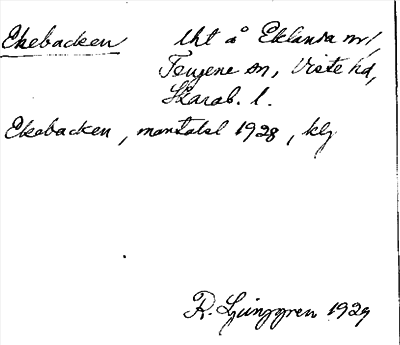 Ekebacken lht å Eklanda nr 1,
Tengene sn, Viste hd,
Skarab. l.
Ekebacken, mantalsl 1928, klg
R. Ljunggren 1929